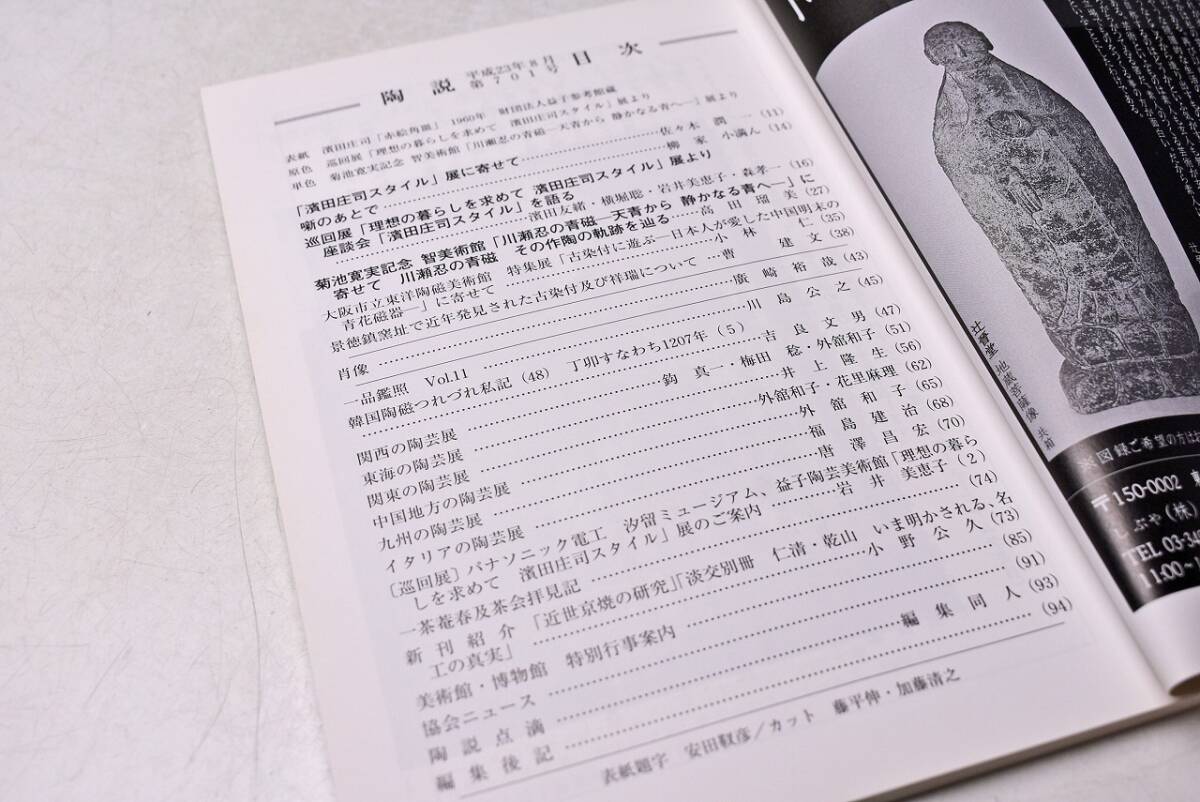 陶説 平成23年8月 第701号 目次
表紙 濱田庄司「赤絵角皿」 1960年 財団法人益子参考館蔵
原色 巡回展「理想の暮らしを求めて 濱田庄司スタイル」展より
単色 菊池寛実記念 智美術館「川瀬忍の青磁―天青から 静かなる青へ―」展より
「濱田庄司スタイル」展に寄せて……佐々木潤一 (11)
噺のあとで……柳家小満ん (14)
巡回展「理想の暮らしを求めて 濱田庄司スタイル」展より
座談会「濱田庄司スタイル」を語る
……濱田友緒・横堀聡・岩井美恵子・森孝一 (16)
菊池寛実記念 智美術館「川瀬忍の青磁―天青から 静かなる青へ―」に
寄せて 川瀬忍の青磁 その作陶の軌跡を辿る……高田瑠美 (27)
大阪市立東洋陶磁美術館 特集展「古染付に遊ぶ―日本人が愛した中国明末の
青花磁器―」に寄せて……小林仁 (35)
景徳鎮窯址で近年発見された古染付及び祥瑞について…曹建文 (38)
肖像……廣崎裕哉 (43)
一品鑑照 Vol.11……川島公之 (45)
韓国陶磁つれづれ私記(48) 丁卯すなわち1207年(5)
……吉良文男 (47)
関西の陶芸展……鈎真一・梅田稔・外舘和子 (51)
東海の陶芸展……井上隆生 (56)
関東の陶芸展……外舘和子・花里麻理 (62)
中国地方の陶芸展……外舘和子 (65)
九州の陶芸展……福島建治 (68)
イタリアの陶芸展……唐澤昌宏 (70)
〔巡回展〕パナソニック電工 汐留ミュージアム、益子陶芸美術館「理想の暮ら
しを求めて 濱田庄司スタイル」展のご案内……岩井美恵子 (2)
一茶菴春及茶会拝見記…… (74)
新刊紹介「近世京焼の研究」「淡交別冊 仁清・乾山 いま明かされる、名
工の真実」……小野公久 (73)
美術館・博物館 特別行事案内…… (85)
協会ニュース…… (91)
陶説点滴……編集同人 (93)
編集後記…… (94)
表紙題字 安田靫彦/カット 藤平伸・加藤清之
辻晉堂 地蔵菩薩像 共箱
※図録ご希望の方は
〒150-0002
しぶや(株)
TEL 03-34
11:00~